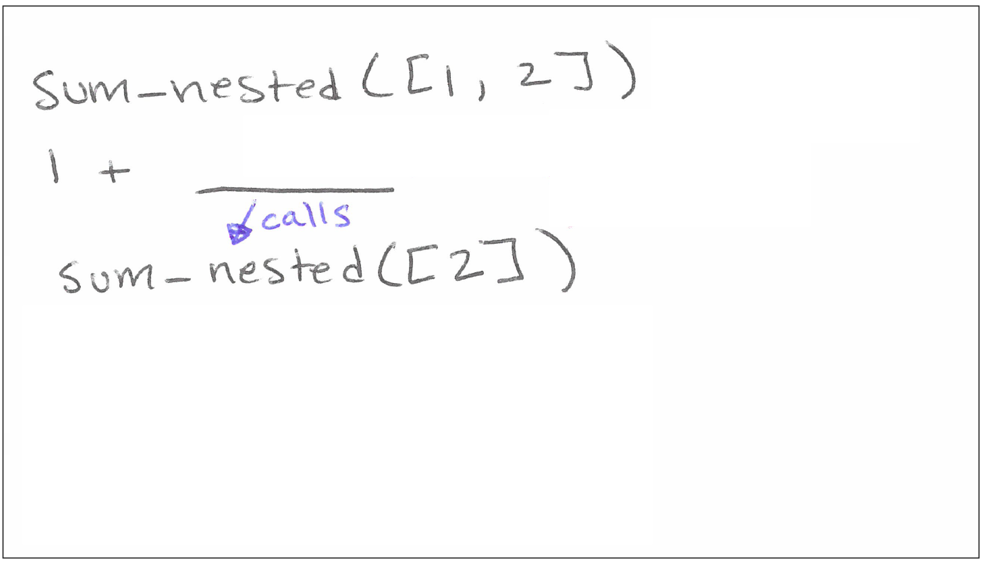 sum-nested([1, 2])
1 + ________
calls
sum-nested([2])